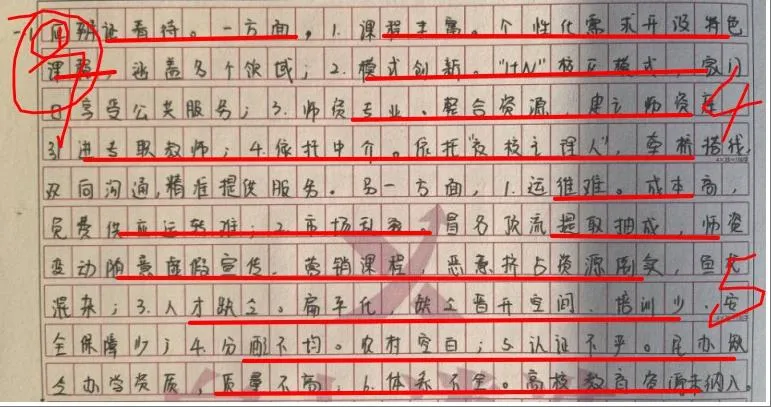 应辩证看待。一方面，1.课程丰富。个性化需求开设特色
课程，涵盖多个领域；2.模式创新。"1+N"校区模式，家门
口享受公共服务；3.师资专业。整合资源，建立师资库
引进专职教师；4.依托中介。依托"夜校主理人"，牵桥搭线，
双向沟通，精准提供服务。另一方面，1.运维难。成本高，
免费供应运转难；2.市场乱象。冒名引流提取抽成，师资
变动随意虚假宣传，营销课程，恶意挤占资源刷文，鱼龙
混杂；3.人才缺乏。扁平化，缺乏晋升空间、培训少、安
全保障少；4.分配不均。农村空白；5.认证不予。民办缺
乏办学资质，质量不高；6.体系不全。高校教育资源未纳入。
9
4
5